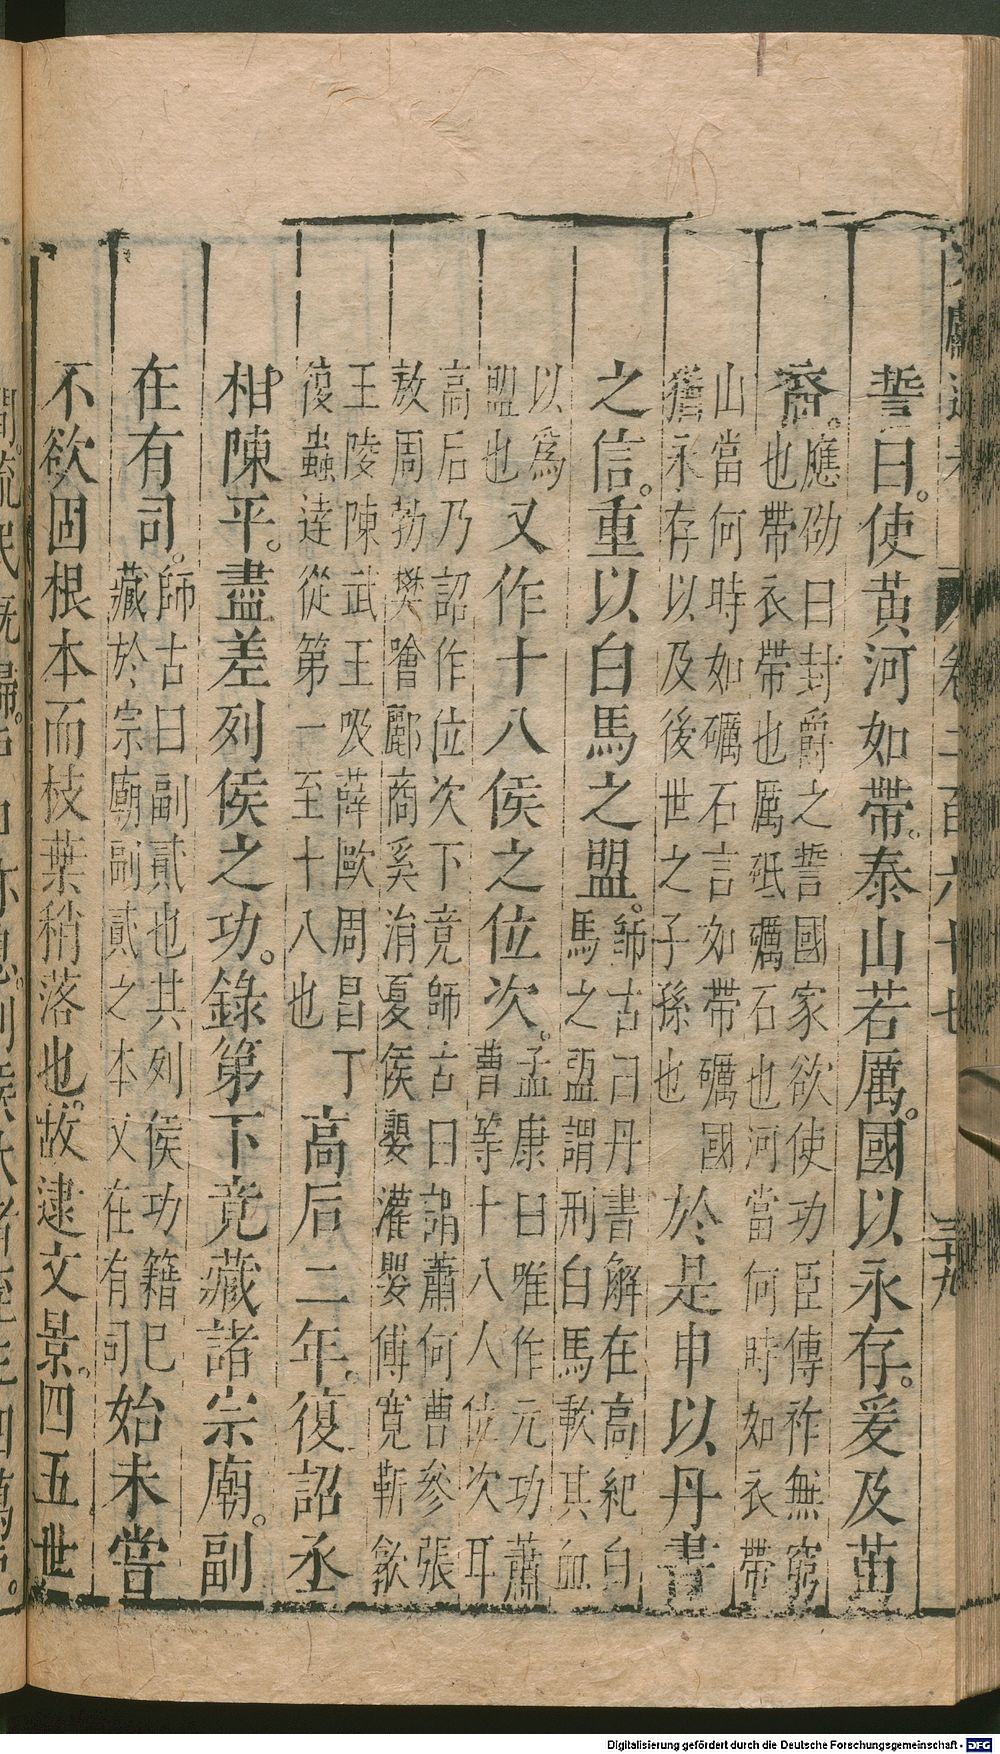 誓曰。使黄河如帶。泰山若厲。國以永存。爰及苗
裔。應劭曰封爵之誓國家欲使功臣傳祚無窮
也帶衣帶也厲砥礪石也河當何時如衣帶
山當何時如礪石言如帶礪國
猶永存以及後世之子孫也
於是申以丹書
之信。重以白馬之盟。師古曰丹書解在高紀白
馬之盟謂刑白馬歃其血
以為
盟也
又作十八侯之位次。孟康曰唯作元功蕭
曹等十八人位次耳
高后乃詔作位次下竟師古曰謂蕭何曹參張
敖周勃樊噲酈商奚涓夏侯嬰灌嬰傅寬靳歙
王陵陳武王吸薛歐周昌丁
復蟲達從第一至十八也
高后二年。復詔丞
相陳平。盡差列侯之功。錄第下竟藏諸宗廟。副
在有司。師古曰副貳也其列侯功籍已
藏於宗廟副貳之本又在有司
始未嘗
不欲固根本而枝葉稍落也。故逮文景。四五世
卷三百六十七
三十九
Digitalisierung gefördert durch die Deutsche Forschungsgemeinschaft - DFG